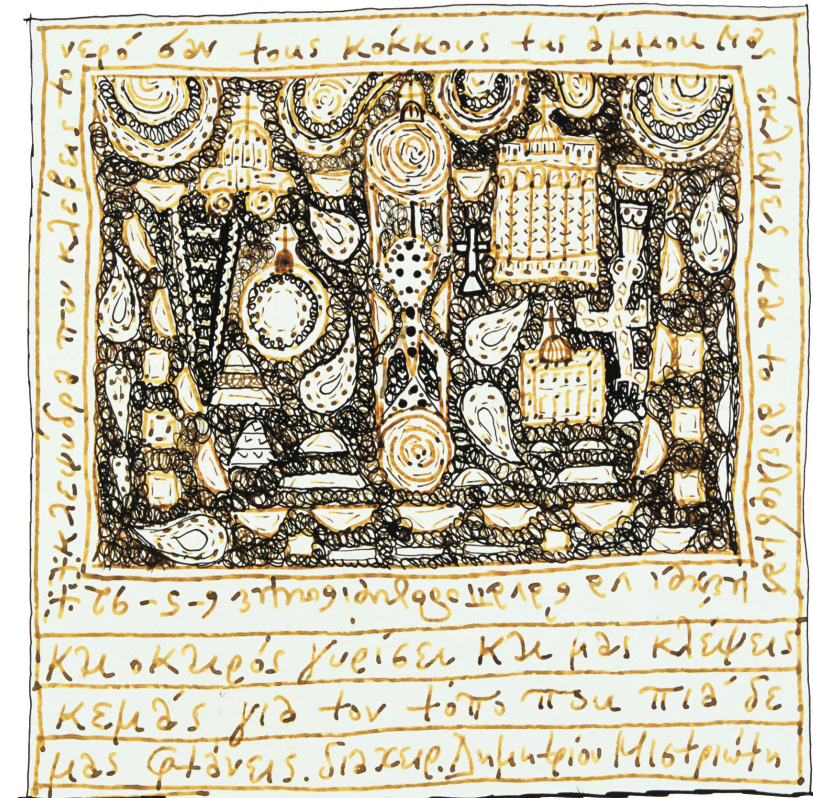 κλεψύδρα που κλέβεις το
νερό σαν τους κόκκους της άμμου μας
έκλεψες και το αδελφό μας
να 6-5-92
και ο καιρός γυρίσει και μας κλέψεις
κεμάς για τον τόπο που πιά δε
μας φτάνεις. διαχειρ. Δημητρίου Μιστριώτη